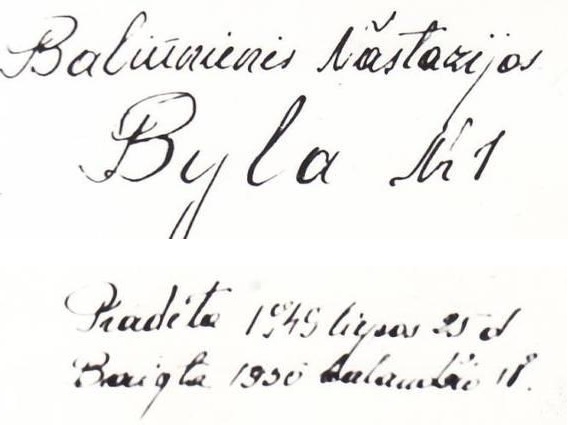 Baliūnienės Nastazijos
Byla Nr 1
Pradėta 1949 liepos 25 d
Baigta 1950 balandžio 18.